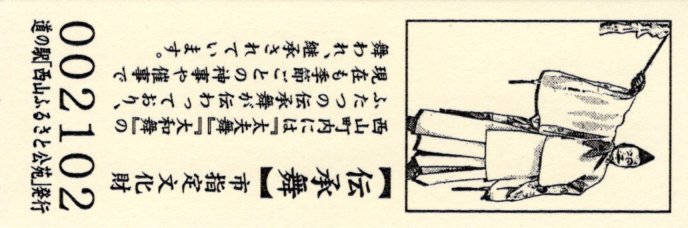 市指定文化財
【伝承舞】
西山町内には『太夫舞』『大和舞』の
ふたつの伝承舞が伝わっており、
現在も季節ごとの神事や催事で
舞われ、継承されています。
002102
道の駅「西山ふるさと公苑」発行